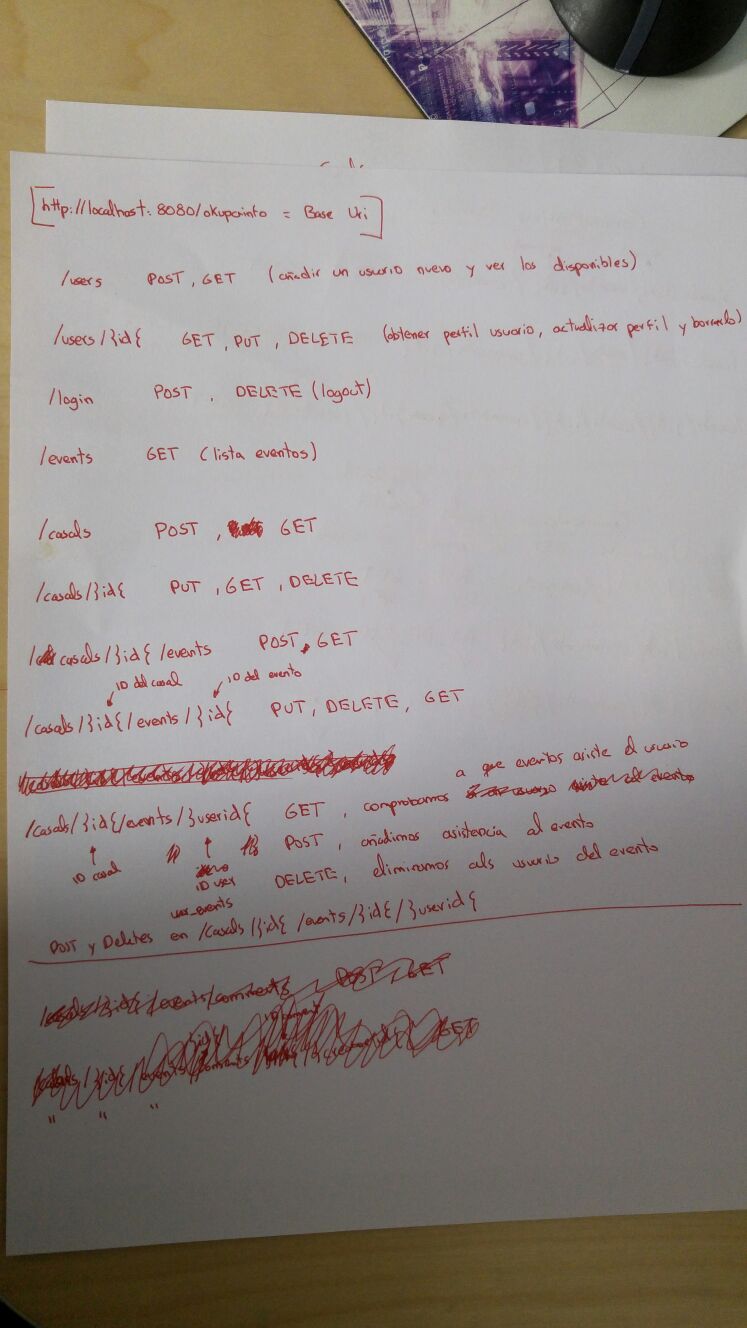 [http://localhost:8080/okupainfo = Base Uri]
/users POST, GET (añadir un usuario nuevo y ver los disponibles)
/users/}id{ GET, PUT, DELETE (obtener perfil usuario, actualizar perfil y borrarlo)
/login POST, DELETE (logout)
/events GET (lista eventos)
/casals POST, GET
/casals/}id{ PUT, GET, DELETE
/casals/}id{/events POST, GET
ID del casal ID del evento
/casals/}id{/events/}id{ PUT, DELETE, GET
/casals/}id{/events/}userid{ GET, comprobamos a que eventos asiste el usuario
POST, añadimos asistencia al evento
ID casal ID user
DELETE, eliminamos als usuario del evento
user_events
POST y Deletes en /casals/}id{/events/}id{/}userid{
/casals/}id{/events/comments POST, GET
" " "